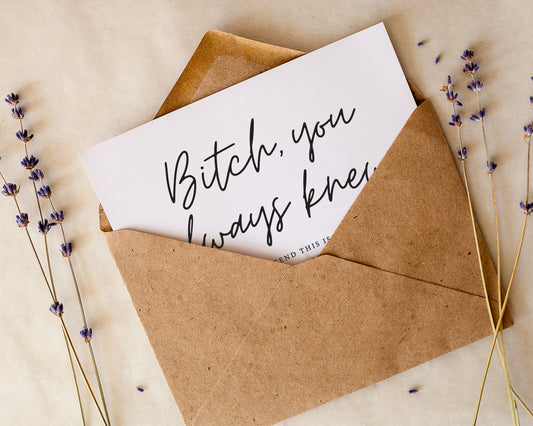 Bitch, you
always knew
END THIS IS